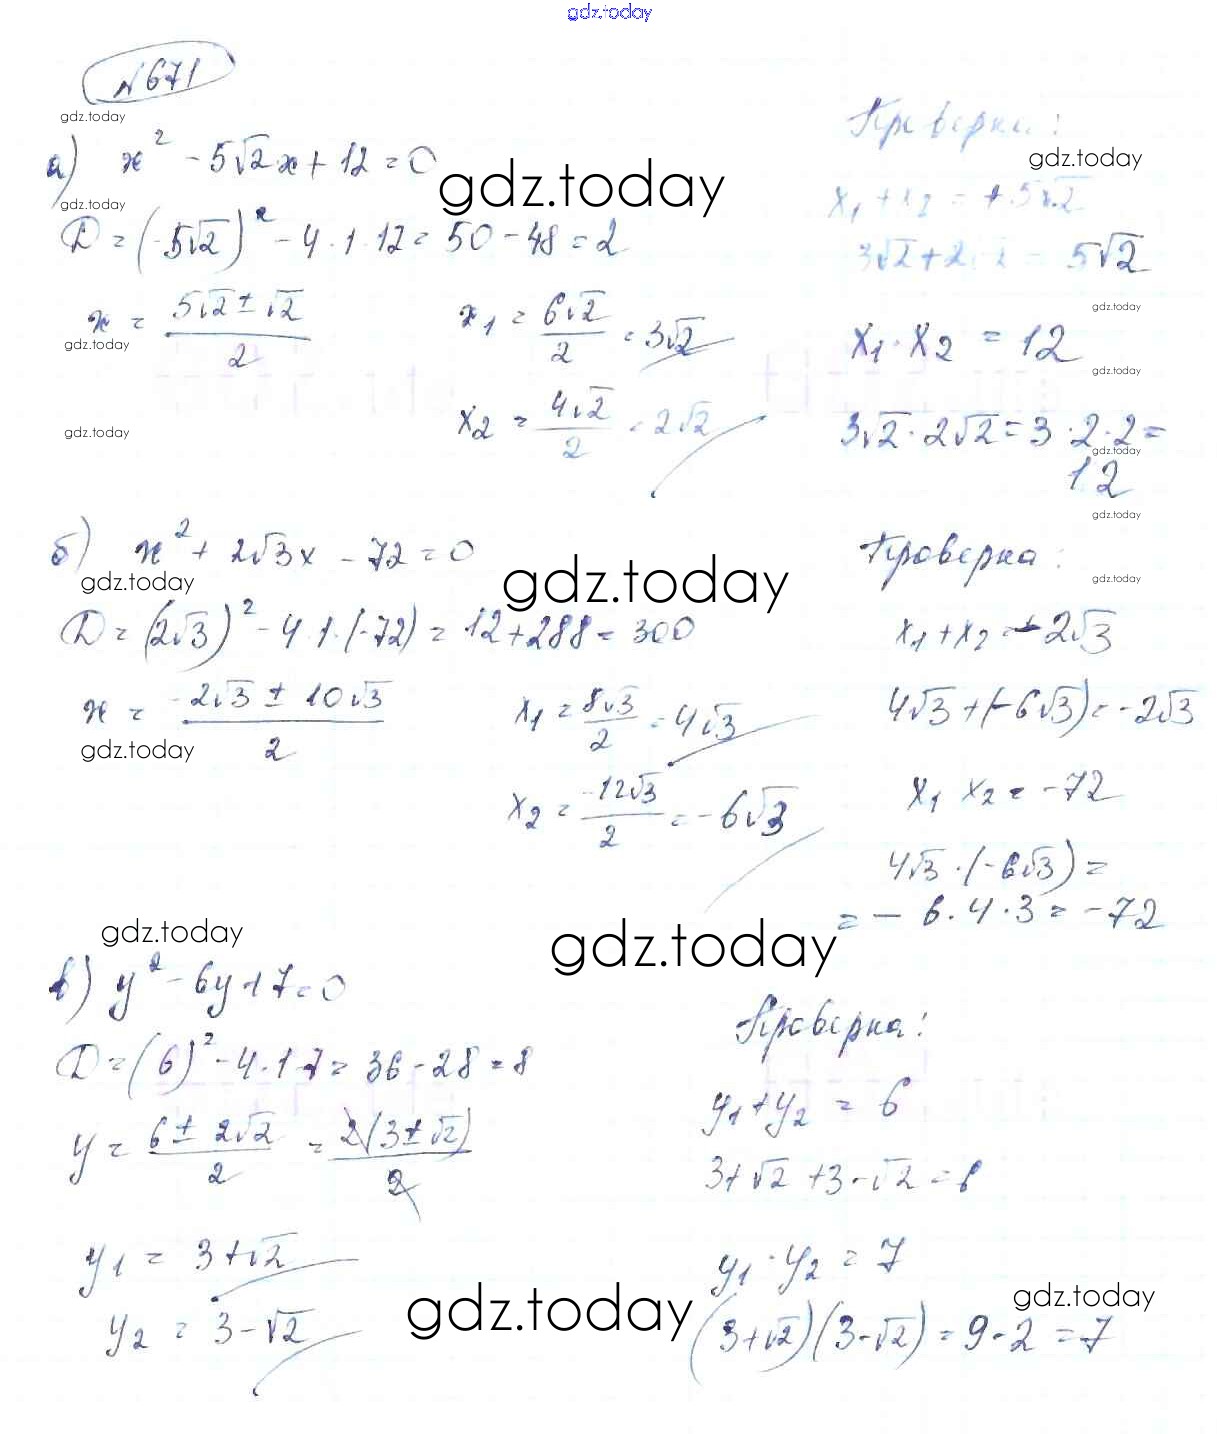 gdz.today
№671
gdz.today
а) x² - 5√2x + 12 = 0
gdz.today
gdz.today
D = (-5√2)² - 4·1·12 = 50 - 48 = 2
x = (5√2 ± √2)/2
x₁ = 6√2/2 = 3√2
gdz.today
x₂ = 4√2/2 = 2√2
gdz.today
Проверка:
gdz.today
x₁ + x₂ = +5√2
3√2 + 2√2 = 5√2
gdz.today
x₁·x₂ = 12
gdz.today
3√2·2√2 = 3·2·2 =
gdz.today
12
gdz.today
б) x² + 2√3x - 72 = 0
gdz.today
gdz.today
D = (2√3)² - 4·1·(-72) = 12 + 288 = 300
x = (-2√3 ± 10√3)/2
x₁ = 8√3/2 = 4√3
gdz.today
x₂ = -12√3/2 = -6√3
Проверка:
gdz.today
x₁ + x₂ = -2√3
4√3 + (-6√3) = -2√3
x₁ x₂ = -72
4√3·(-6√3) =
= -6·4·3 = -72
gdz.today
gdz.today
в) y² - 6y + 7 = 0
D = (6)² - 4·1·7 = 36 - 28 = 8
y = (6 ± 2√2)/2 = 2(3 ± √2)/2
y₁ = 3 + √2
y₂ = 3 - √2
gdz.today
Проверка:
y₁ + y₂ = 6
3 + √2 + 3 - √2 = 6
y₁·y₂ = 7
gdz.today
(3 + √2)(3 - √2) = 9 - 2 = 7